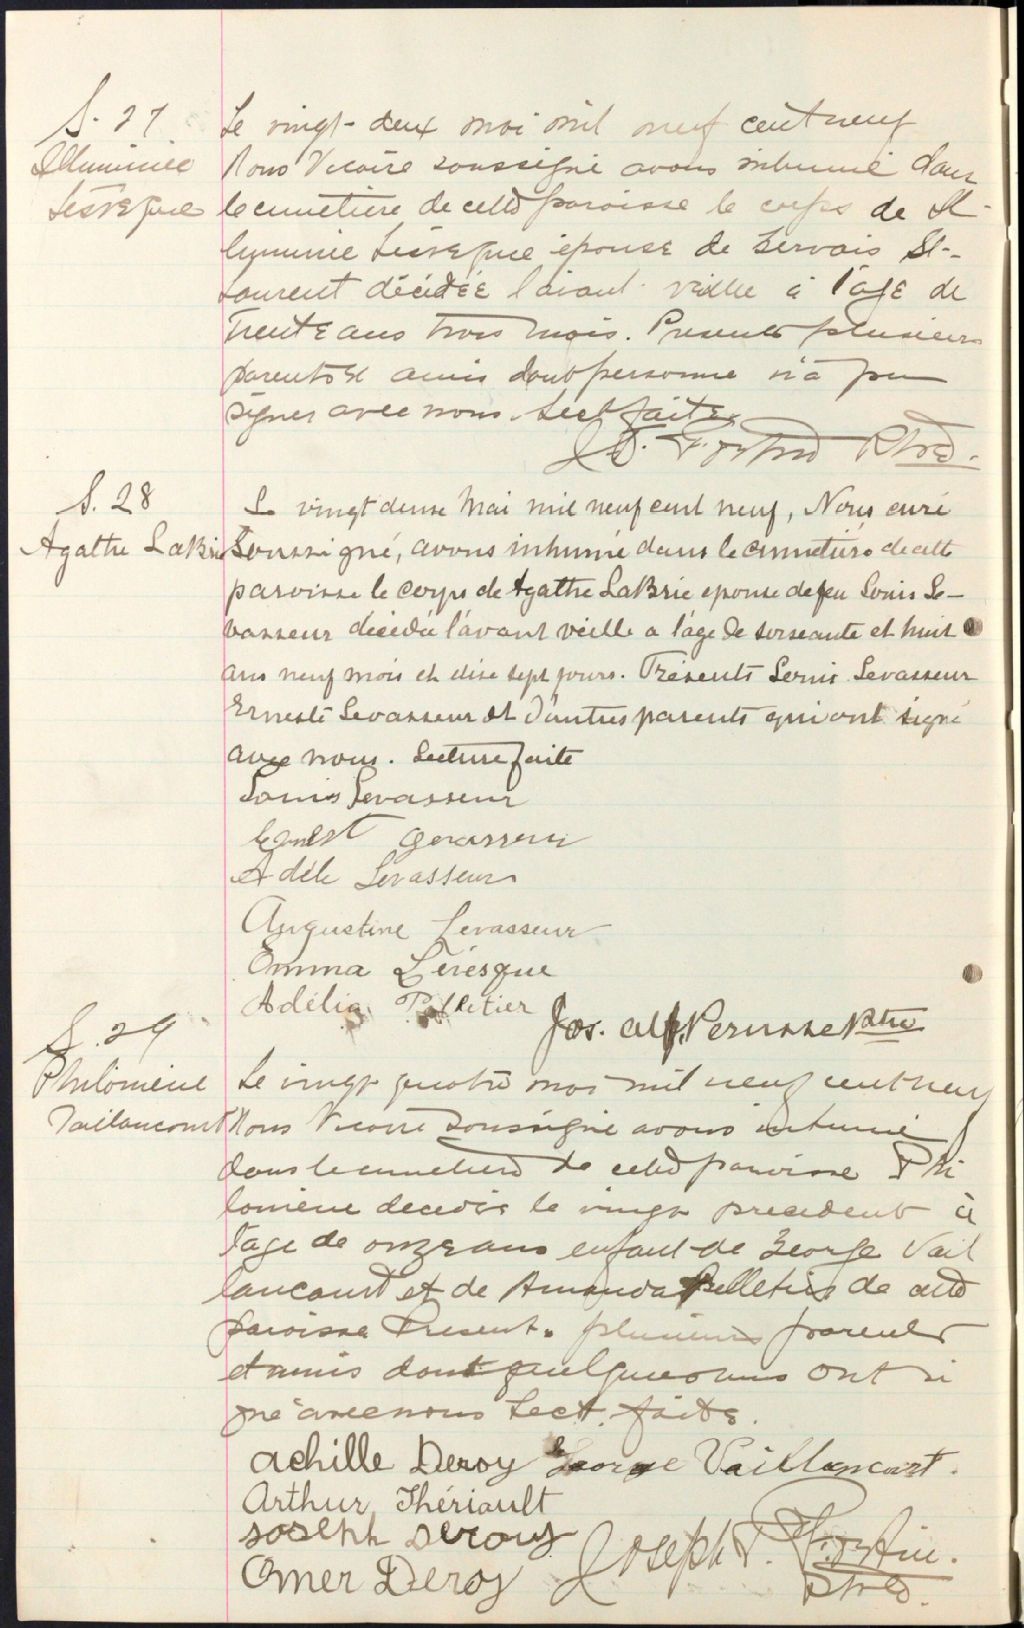 S. 27
Illuminée
Lésvèque
Le vingt-deux mai mil neuf cent neuf
Nous Vicaire soussigné avons inhumé dans
le cimetière de cette paroisse le corps de Il-
luminie Lésvèque épouse de Gervais St-
Laurent décédée l'avant veille à l'age de
trente ans trois mois. Présents plusieurs
parents et amis dont personne n'a pu
signer avec nous. Lect faite.
J. T. Fortin Ptre.
S. 28
Agathe LaBrie
Le vingt deux Mai mil neuf cent neuf, Nous curé
Soussigné, avons inhumé dans le cimetière de cette
paroisse le corps de Agathe LaBrie epouse de feu Louis Le-
vasseur décédée l'avant veille a l'âge de soixante et huit
ans neuf mois et dix sept jours. Présents Louis Levasseur
Ernest Levasseur et d'autres parents qui ont signé
avec nous. Lecture faite
Louis Levasseur
Ernest Levasseur
Adèle Levasseur
Augustine Levasseur
Emma Lévesque
Adélia Pelletier
Jos. Alf. Perusse Ptre
S. 29
Philomène
Vailancourt
Le vingt quatre mai mil neuf cent neuf
Nous Vicaire soussigné avons inhumé
dans le cimetière de cette paroisse Phi
lomène decedée le vingt precedent à
l'age de onze ans enfant de George Vail
lancourt et de Amanda Pelletier de cette
paroisse Present. plusieurs parents
et amis dont quelques uns ont si
gné avec nous Lect. faite.
Achille Deroy George Vaillancourt.
Arthur Thériault
Joseph Deroy
Omer Deroy
Joseph T. Fortin.
Ptre.